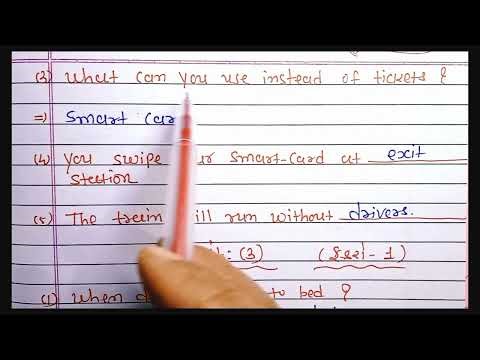 (3) What can you use instead of tickets ?
⇒ Smart Car
(4) You swipe ur smart-card at exit
station
(5) The train ill run without drivers.
: (3)
(1) When d to bed ?